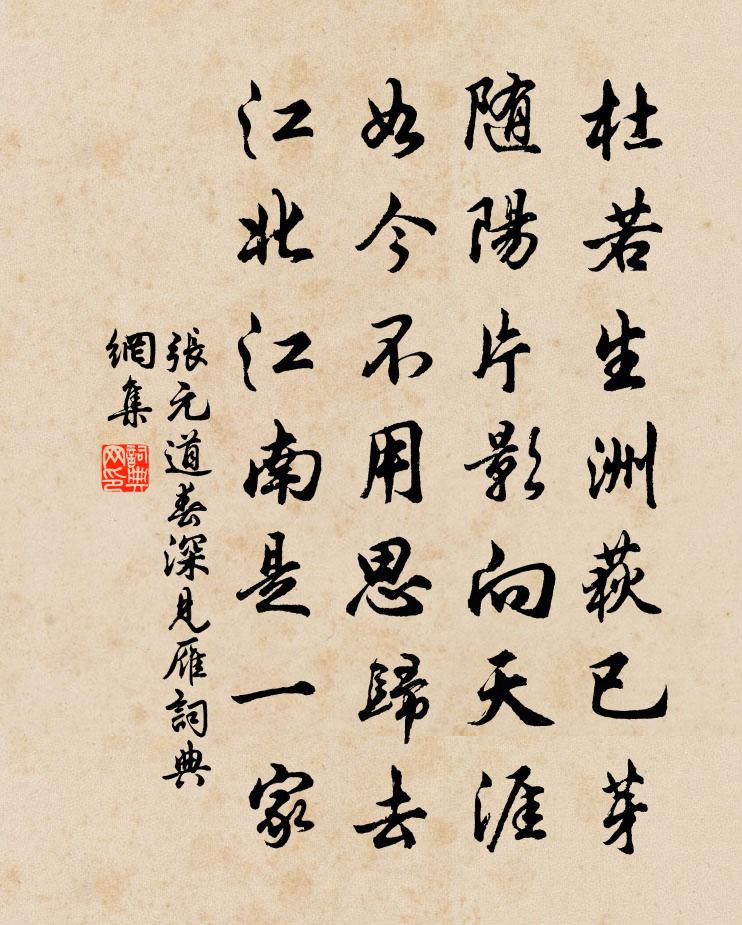 杜若生洲荻已芽
随陽片影向天涯
如今不用思歸去
江北江南是一家
張元道春深見雁詞典
網集
詞典
网印